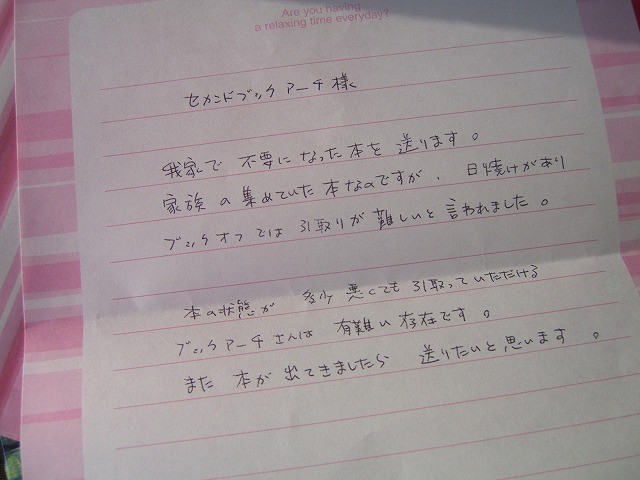 Are you having
a relaxing time everyday?
セカンドブックアーチ様
我家で不要になった本を送ります。
家族の集めていた本なのですが、日焼けがあり
ブックオフでは引取りが難しいと言われました。
本の状態が多少悪くても引取っていただける
ブックアーチさんは有難い存在です。
また本が出てきましたら送りたいと思います。